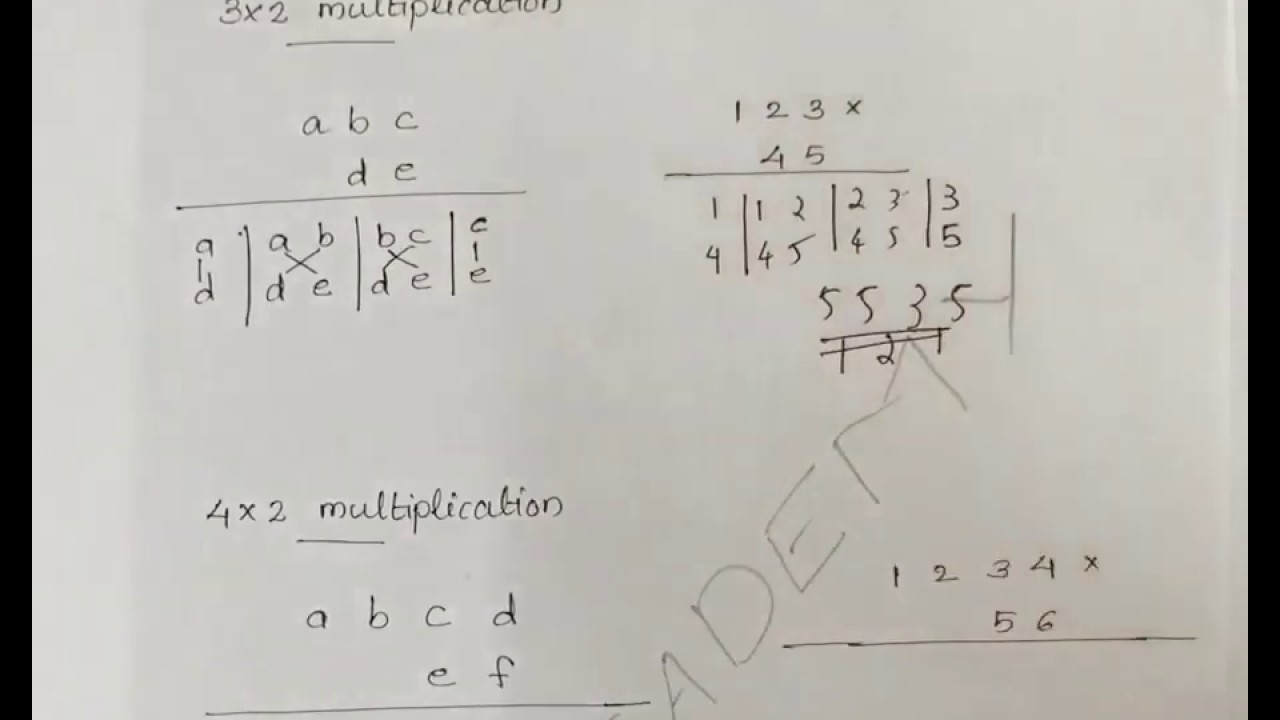 3x2 multiplication
a b c
d e
a | a b | b c | c
d | d e | d e | e
1 2 3 x
4 5
1 | 1 2 | 2 3 | 3
4 | 4 5 | 4 5 | 5
5 5 3 5
1 2 1
4x2 multiplication
a b c d
e f
1 2 3 4 x
5 6